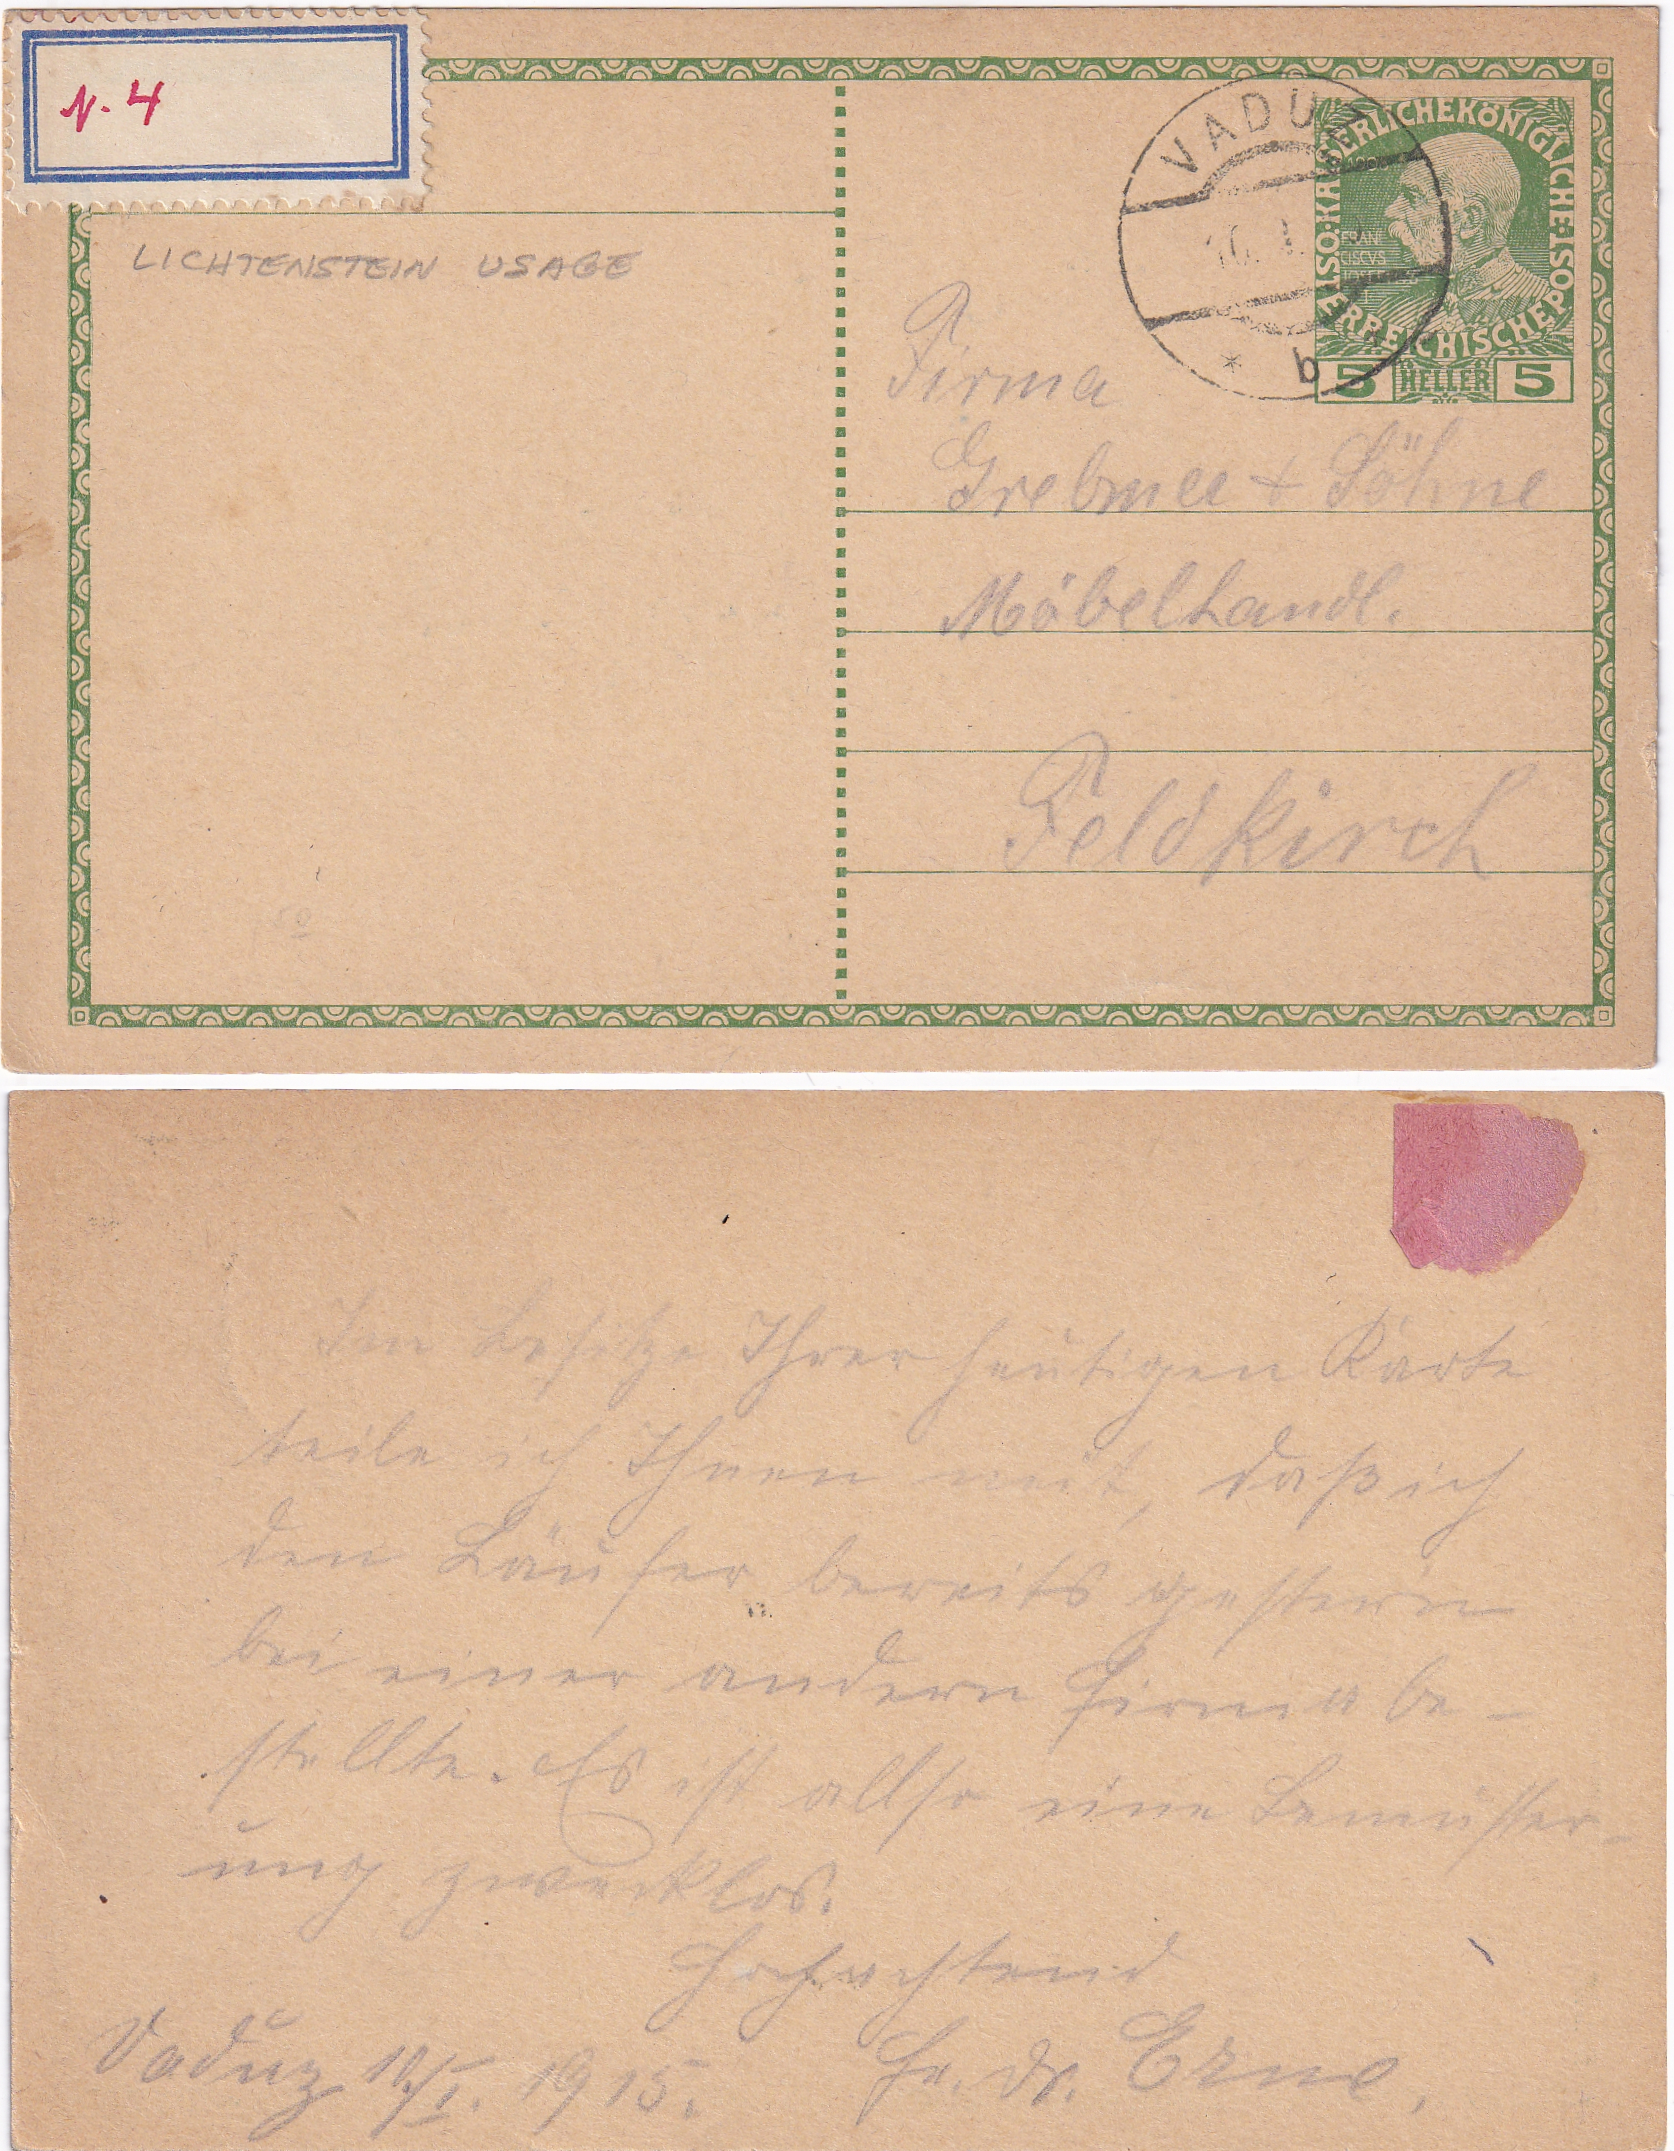 N. 4
LICHTENSTEIN USAGE
VADUZ
10. I.
* b *
KAISERLICHEKÖNIGLICHE·ÖSTERREICHISCHEPOST
FRANCISCVS
5 HELLER 5
Firma
Grebmer + Söhne
Möbelhandl.
Feldkirch
Im Besitze Ihrer heutigen Karte
teile ich Ihnen mit, daß ich
den Läufer bereits gestern
bei einer andern Firma be-
stellte. Es ist allso eine Bemüster-
ung zwecklos.
Hochachtend
Vaduz 10/I. 1915. Fr. Dr.